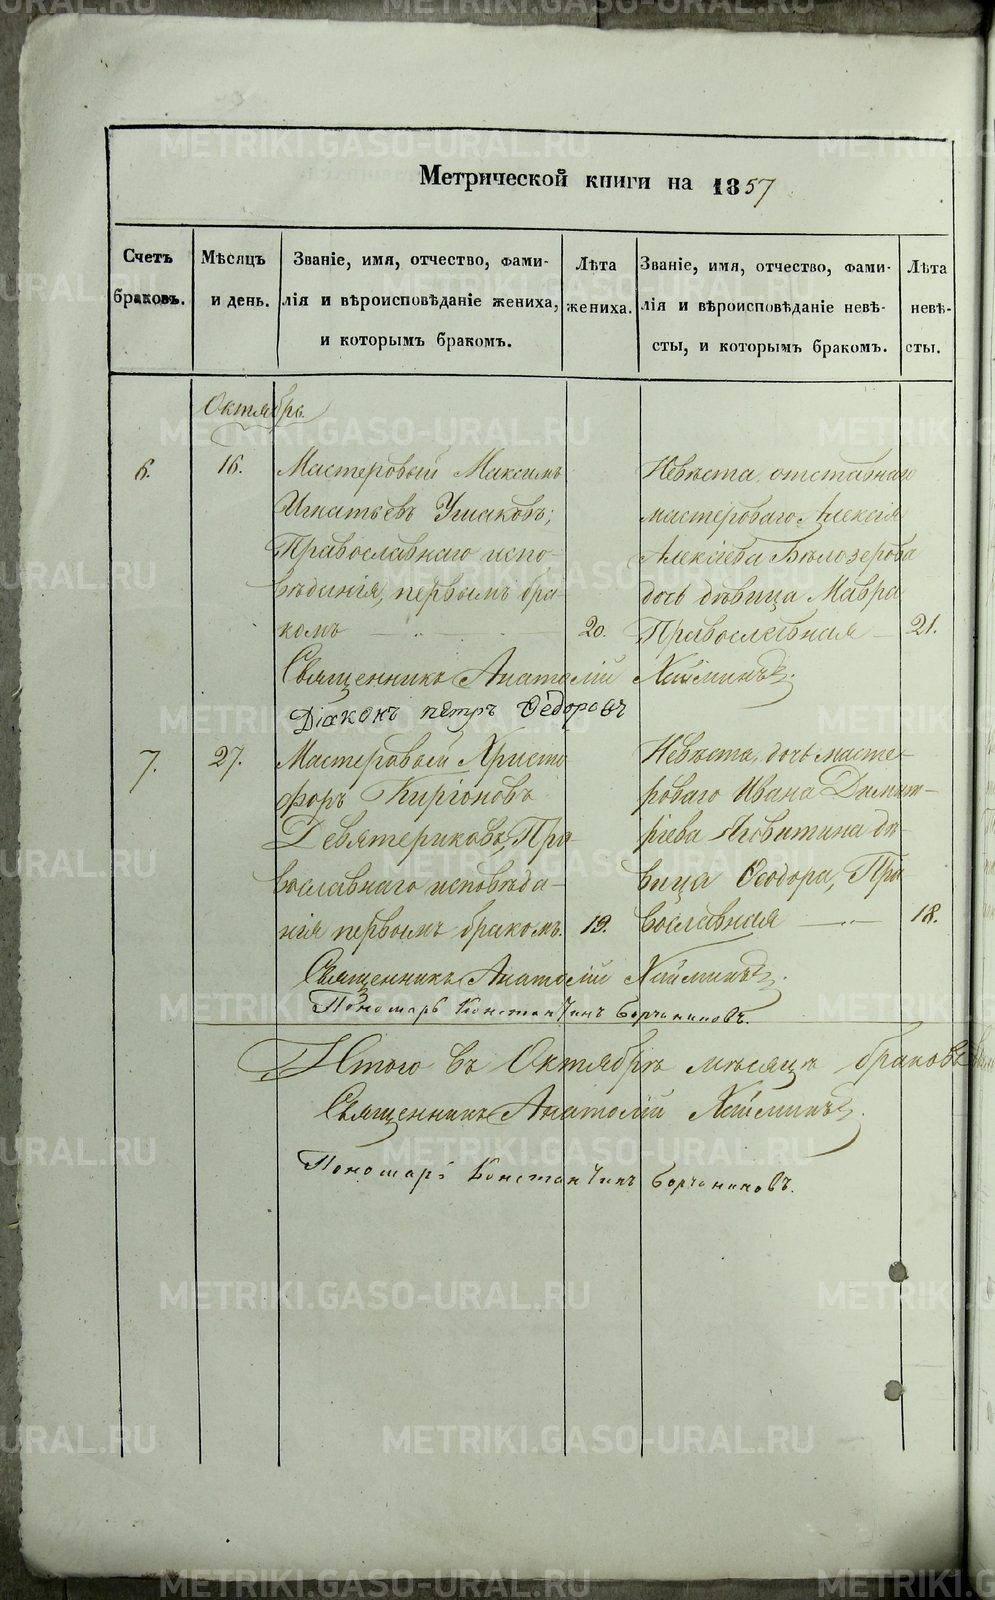 Метрической книги на 1857
Счетъ браковъ.
Мѣсяцъ и день.
Званіе, имя, отчество, фами-
лія и вѣроисповѣданіе жениха,
и которымъ бракомъ.
Лѣта жениха.
Званіе, имя, отчество, фами-
лія и вѣроисповѣданіе невѣ-
сты, и которымъ бракомъ.
Лѣта невѣ-
сты.
Октябрь.
6.
16.
Мастеровый Максимъ
Игнатьевъ Ушаковъ;
Православнаго испо-
вѣданія, первымъ бра-
комъ
20.
Невѣста, отставнаго
мастероваго Алексія
Алексіева Бѣлозерова
дочь дѣвица Мавра
Православная
21.
Священникъ Анатолій Хайминъ.
Діаконъ Петръ Федоровъ
7.
27.
Мастеровый Христо
форъ Киріоновъ
Девятериковъ, Пра
вославнаго исповѣда-
нія первымъ бракомъ.
19.
Невѣста, дочь масте-
роваго Ивана Димит-
ріева Яговитина дѣ-
вица Ѳеодора, Пра
вославная
18.
Священникъ Анатолій Хайминъ.
Пономарь Константинъ Борчаниновъ.
Итого въ Октябрѣ мѣсяцѣ браковъ
Священникъ Анатолій Хайминъ.
Пономарь Константинъ Борчаниновъ.
METRIKI.GASO-URAL.RU